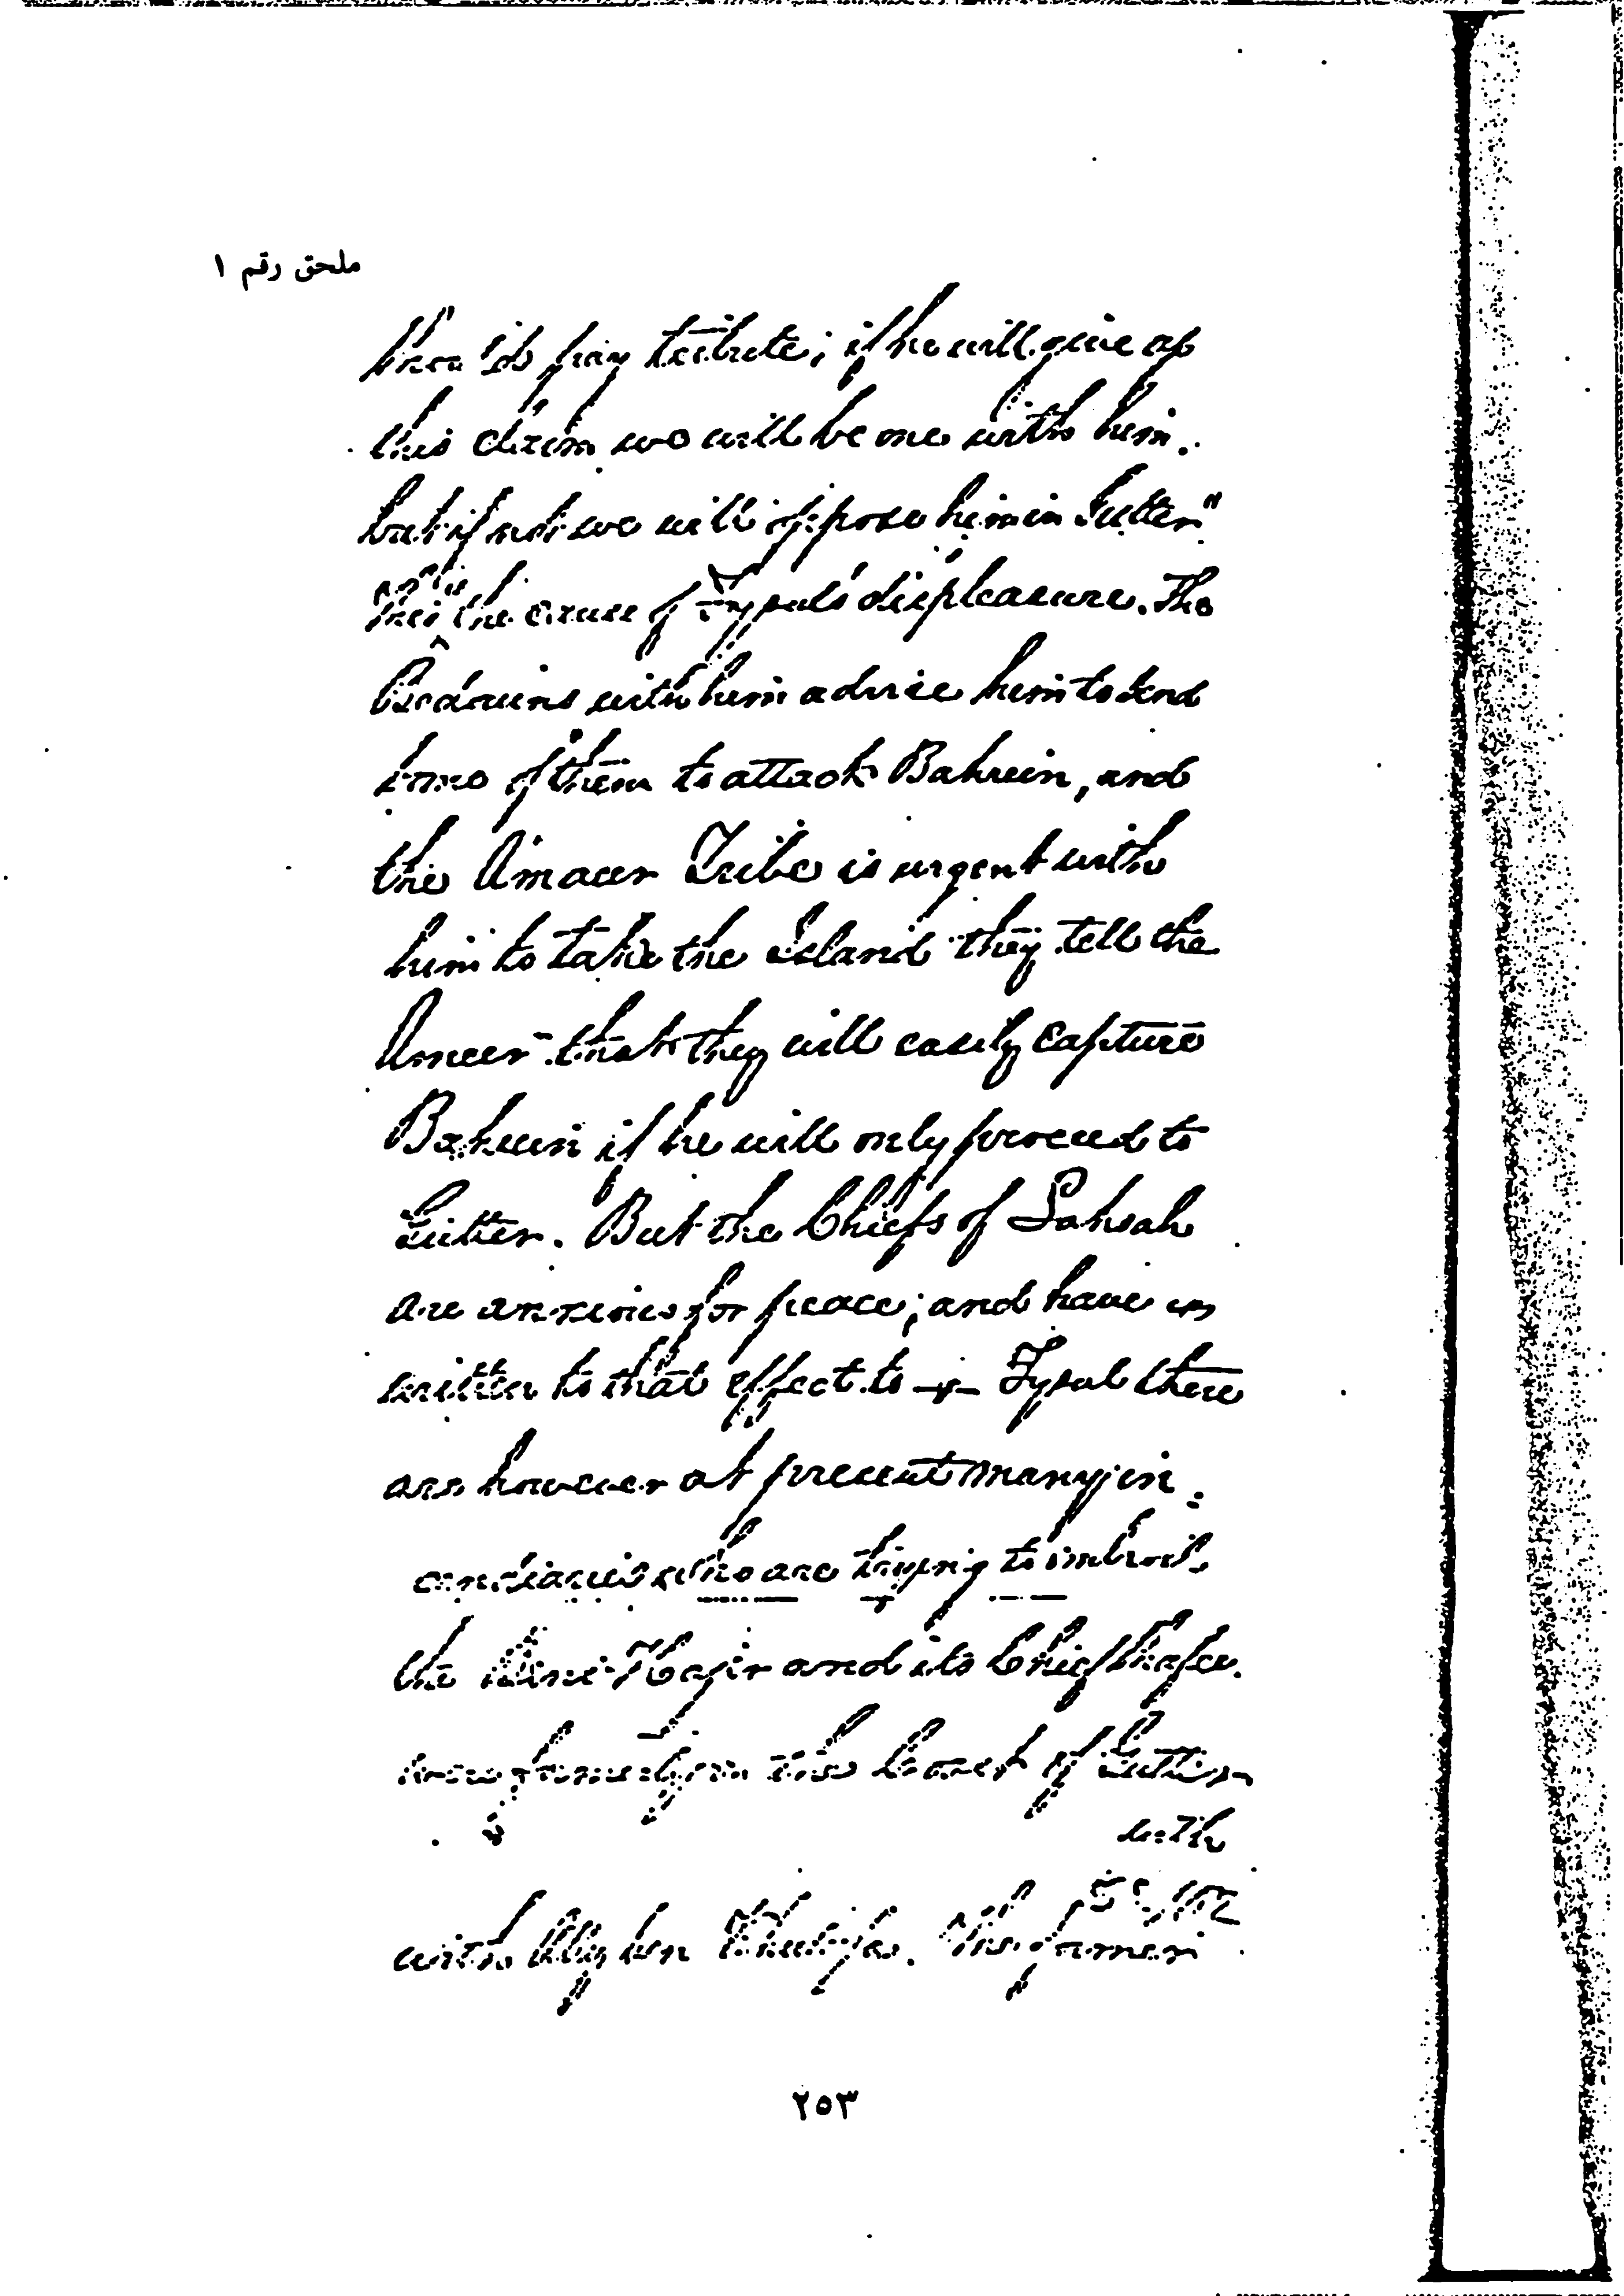 ملحق رقم ١
pay tribute; if he will give up
this claim we will be one with him.
but if not we will oppose him in Gutter"
this is the cause of Fysul's displeasure. The
Bedouins with him advise him to send
some of them to attack Bahrein, and
the Amaer Tribe is urgent with
him to take the Island they tell the
Ameer that they will easily capture
Bahrein if he will only proceed to
Gutter. But the Chiefs of Lahsah
are anxious for peace; and have
written to that effect to Fysul there
are however at present many in:
cendiaries who are trying to embroil
the Beni Hajir and its Chief
the Coast of Gutter
with
with Aly bin
٢٥٣